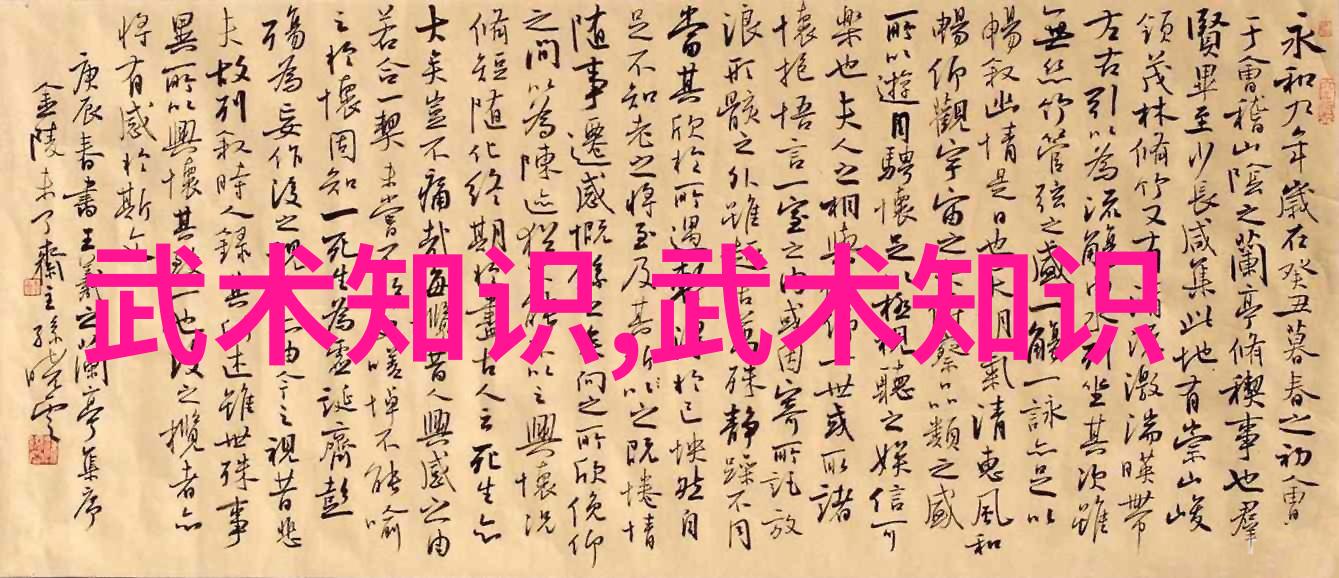 永和九年歲在癸丑暮春之初會
于會稽山陰之蘭亭脩禊事也羣
賢畢至少長咸集此地有崇山峻
領茂林脩竹又有清流激湍暎帶
左右引以為流觴曲水列坐其次雖
無絲竹管弦之盛一觴一詠亦足以
暢叙幽情是日也天朗氣清惠風和
暢仰觀宇宙之俯察品類之盛
所以遊目騁懷足以極視聽之娛信可
樂也夫人之相與俯仰一世或取諸
懷抱悟言一室之內或因寄所託放
浪形骸之外雖趣舍萬殊靜躁不同
當其欣於所遇暫得於己怏然自
足不知老之將至及其所之既惓情
隨事遷感慨係之矣向之所欣俛仰
之間以為陳迹猶不能不以之興懷況
脩短隨化終期於盡古人云死生亦
大矣豈不痛哉每攬昔人興感之由
若合一契未嘗不嗟悼不能喻
之於懷固知一死生為虛誕齊彭
殤為妄作後之視由今之視昔悲
夫故列叙時人錄其所述雖世殊事
異所以興懷其致一也後之攬者亦
將有感於斯文
庚辰春書王羲之蘭亭集序
金陵未了齋主孫曉雲
武术知识,武术知识